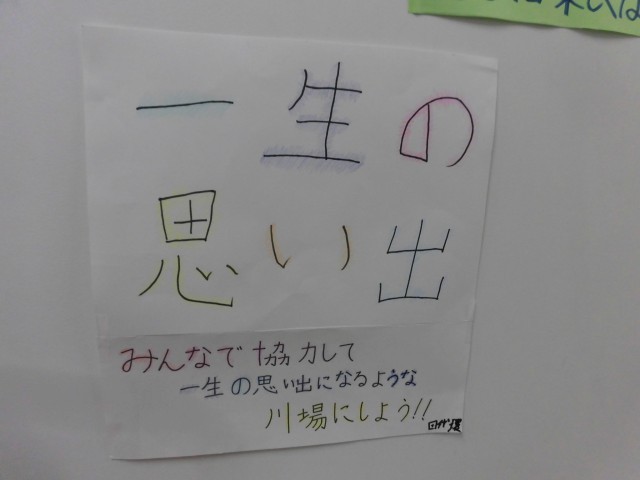 一生の
思い出
みんなで協力して
一生の思い出になるような
川場にしよう!!